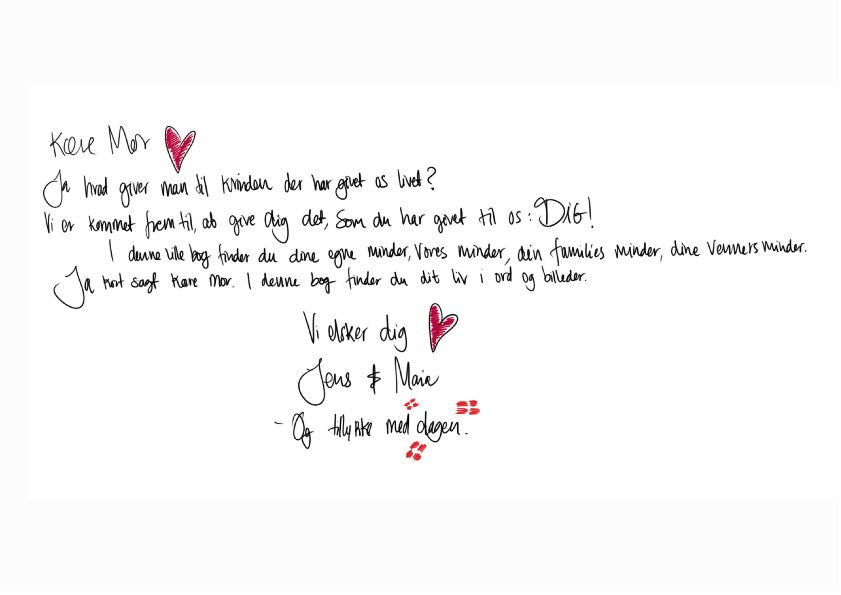 Kære Mor
Ja hvad giver man til kvinden der har givet os livet?
Vi er kommet frem til, at give dig det, som du har givet til os: DIG!
I denne lille bog finder du dine egne minder, Vores minder, din families minder, dine venners minder.
Ja kort sagt kære mor. I denne bog finder du dit liv i ord og billeder.
Vi elsker dig
Jens & Maia
- Og tillykke med dagen.